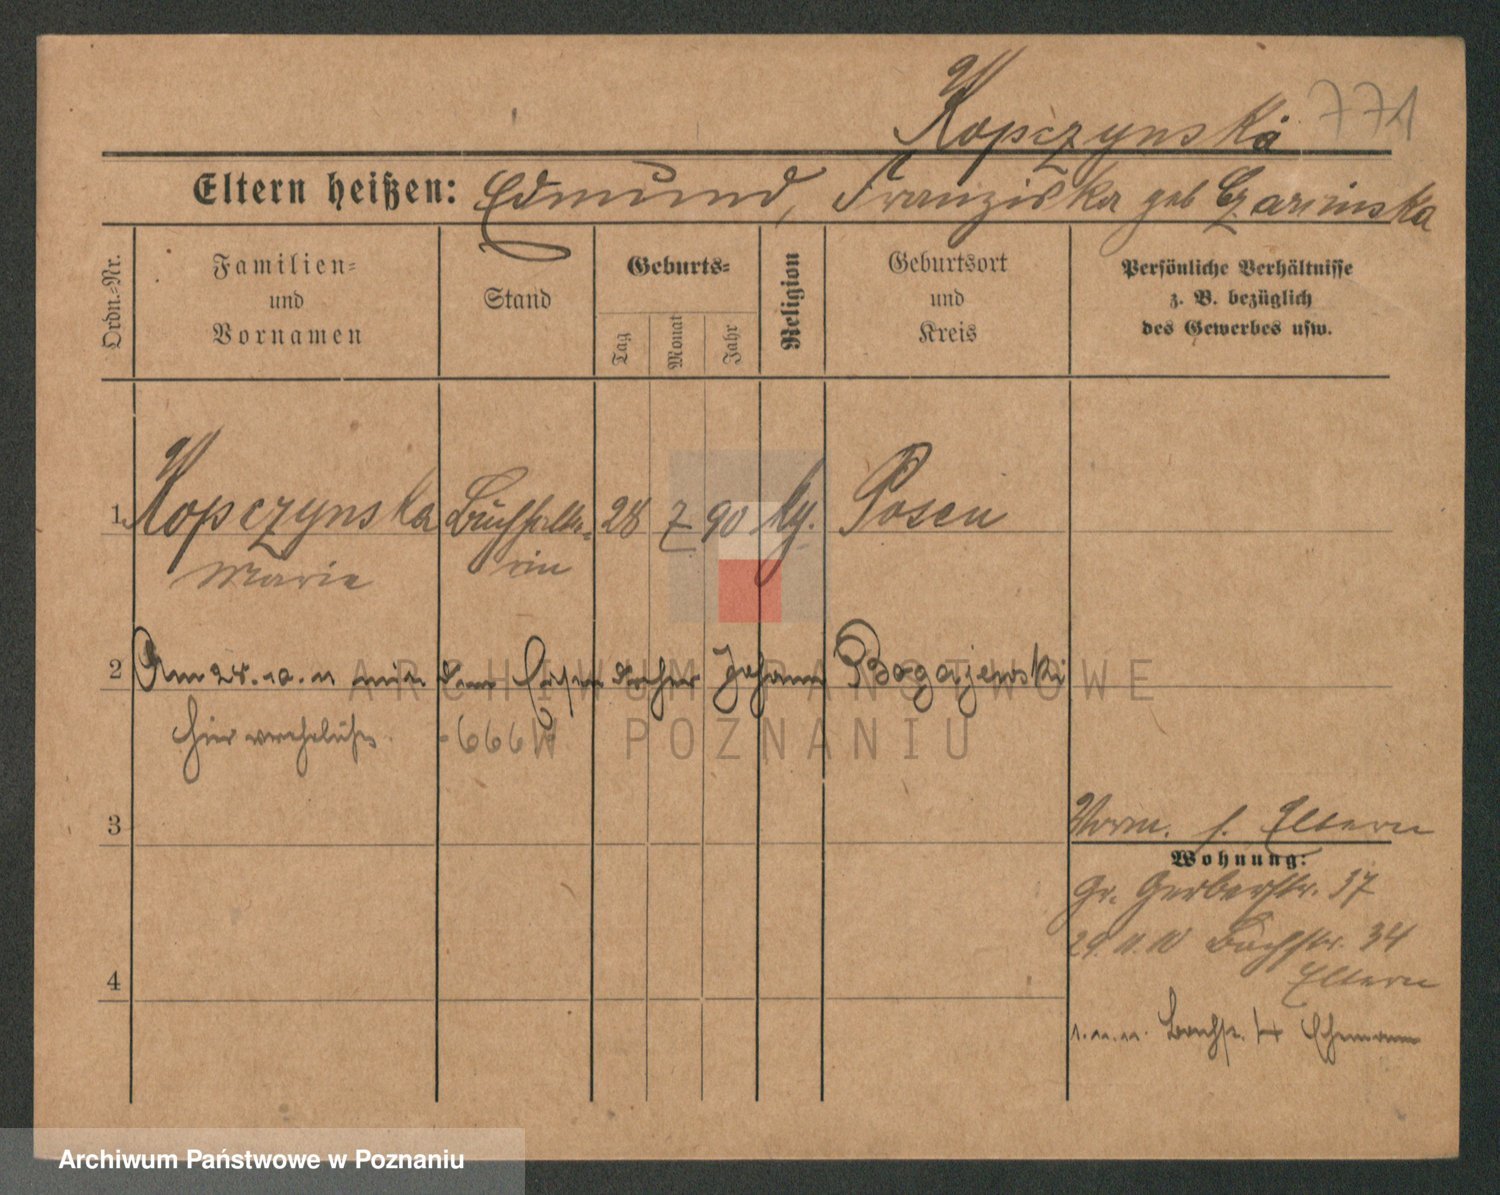 Kopczynska 771
Eltern heißen: Edmund, Franziska geb Czarninska
Ordn.=Nr.
Familien=
und
Vornamen
Stand
Geburts=
Tag
Monat
Jahr
Religion
Geburtsort
und
Kreis
Persönliche Verhältnisse
z. B. bezüglich
des Gewerbes usw.
1 Kopczynska Buchhalte= 28 7 90 kg. Posen
Marie rin
2 Am 24.10.11 mit dem Eisendreher Johann Bogajewski
hier verehelicht.
3
Vorm. s. Eltern
Wohnung:
Gr. Gerberstr. 37
29.11.10 Bachstr. 34
Eltern
4
1.11.11. Bachstr. Ehemann
ARCHIWUM PAŃSTWOWE
W POZNANIU
Archiwum Państwowe w Poznaniu